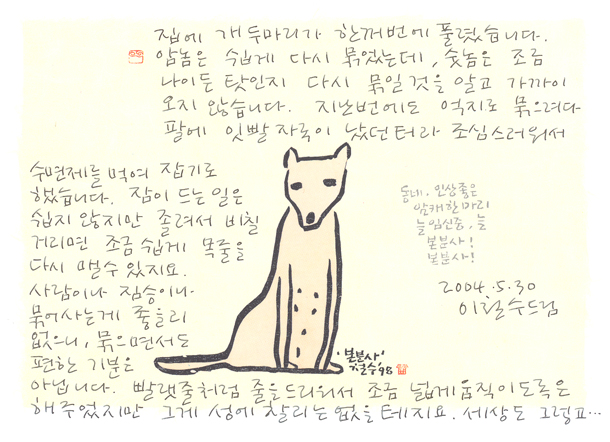 집에 개 두마리가 한꺼번에 풀렸습니다.
암놈은 쉽게 다시 묶었는데, 숫놈은 조금
나이든 탓인지 다시 묶일 것을 알고 가까이
오지 않습니다. 지난번에도 억지로 묶으려다
팔에 잇빨 자국이 났던 터라 조심스러워서
수면제를 먹여 잡기로
했습니다. 잠이 드는 일은
쉽지 않지만 졸려서 비칠
거리면 조금 쉽게 목줄을
다시 맬 수 있지요.
사람이나 짐승이나
묶여사는게 좋을리
없으니, 묶으면서도
편한 기분은
아닙니다. 빨랫줄처럼 줄을드리워서 조금 넓게움직이도록은
해 주었지만 그게 성에 찰리는 없을 테지요. 세상도 그렇고…
동네. 인상좋은
암캐 한 마리
늘 임신중, 늘
본분사!
본분사!
2004.5.30
이철수드림
'본분사'
철수98